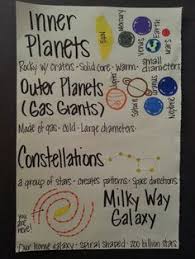 Inner
Planets
SUN
Mercury
Venus
Earth
Mars
Rocky w/ craters - Solid core - warm - small diameters
Outer Planets
(Gas Giants)
Made of gas - cold - Large diameters
Constellations
a group of stars - creates patterns - space directions
Milky Way
Galaxy
you are here!
Our home galaxy - spiral shaped - 200 billion stars